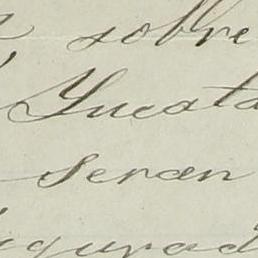 sobre
Yucata
seran
igurad